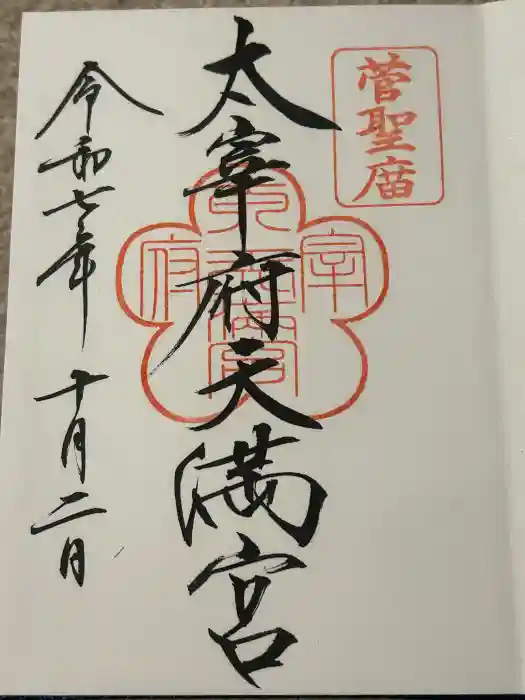 菅聖庿
太宰府天満宮
宰
府
令和七年 十月二日